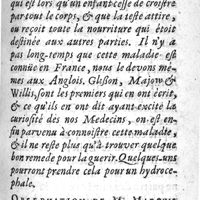 qui est lors qu'un enfant cesse de croistre
par tout le corps, & que la teste attire,
ou reçoit toute la nourriture qui étoit
destinée aux autres parties. Il n'y a
pas long-temps que cette maladie est
connüe en France, nous le devons mé-
mes aux Anglois. Glisson, Majow &
Willis, sont les premiers qui en ont écrit,
& ce qu'ils en ont dit ayant excité la
curiosité des nos Medecins, on est en-
fin parvenu à connoistre cette maladie,
& il ne reste plus qu'à trouver quelque
bon remede pour la guerir. Quelques-uns
pourront prendre cela pour un hydroce-
phale.
OBSERVATION DE Mr